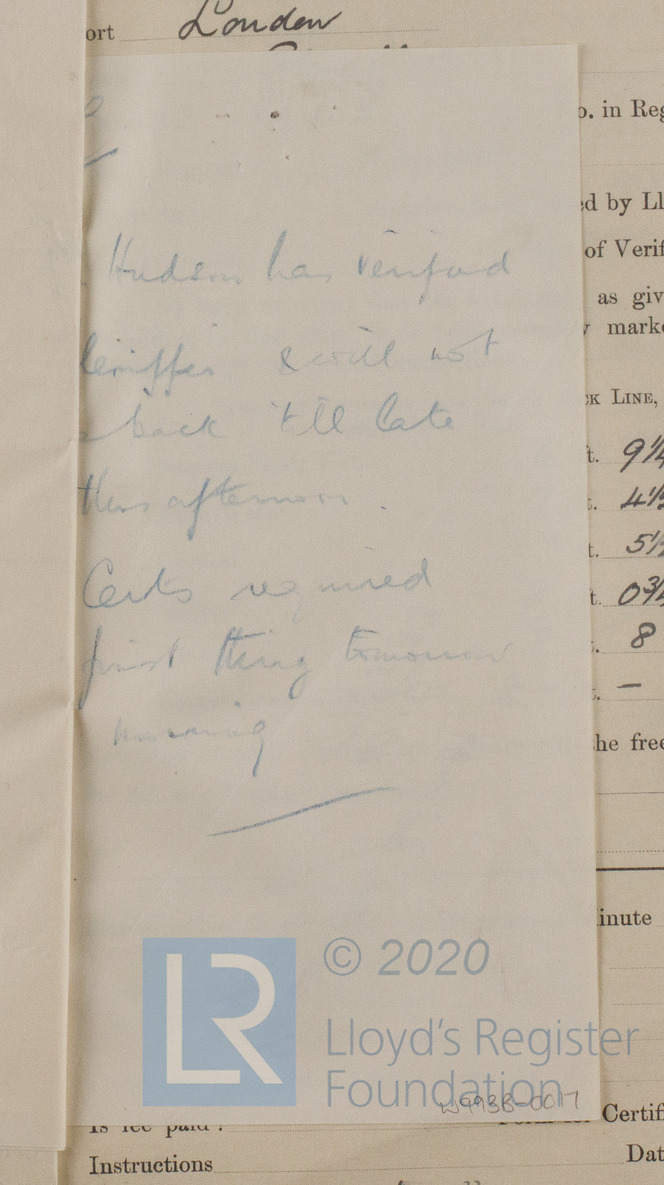 ort London
o. in Reg
ed by Ll
of Verif
as giv
marke
CK LINE,
t. 9¼
t. 4½
t. 5½
t. 0¾
t. 8
t. —
he free
inute
Hudson has verified
& will not
back 'till late
this afternoon.
Certs required
first thing tomorrow
morning
© 2020
LR
Lloyd's Register
Foundation
W993B-0017
Is fee paid?
Certif
Instructions
Dat